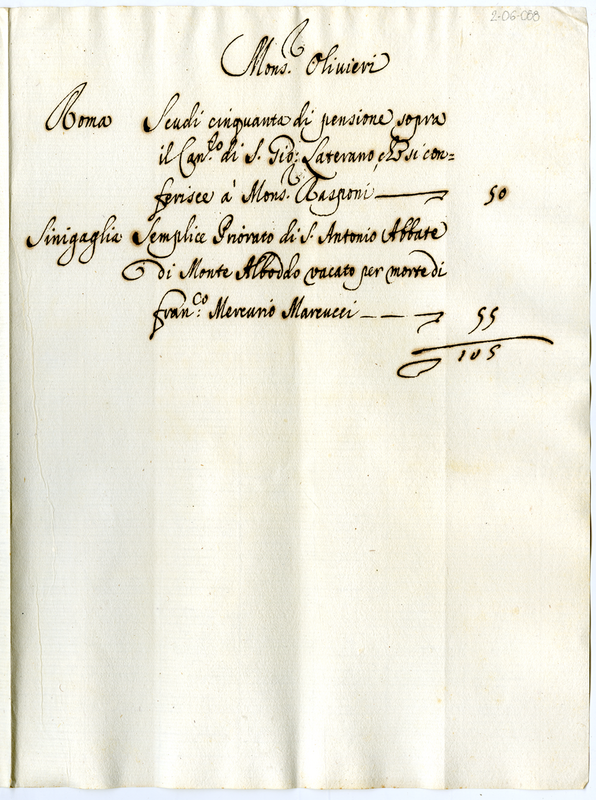 2-06-088
Mons.r Olivieri
Roma Scudi cinquanta di pensione sopra
il Can.to di S. Gio: Laterano, che si con=
ferisce à Mons.r Rasponi 50
Sinigaglia Semplice Priorato di S. Antonio Abbate
di Monte Alboddo vacato per morte di
Fran.co Mercurio Marcucci 55
105